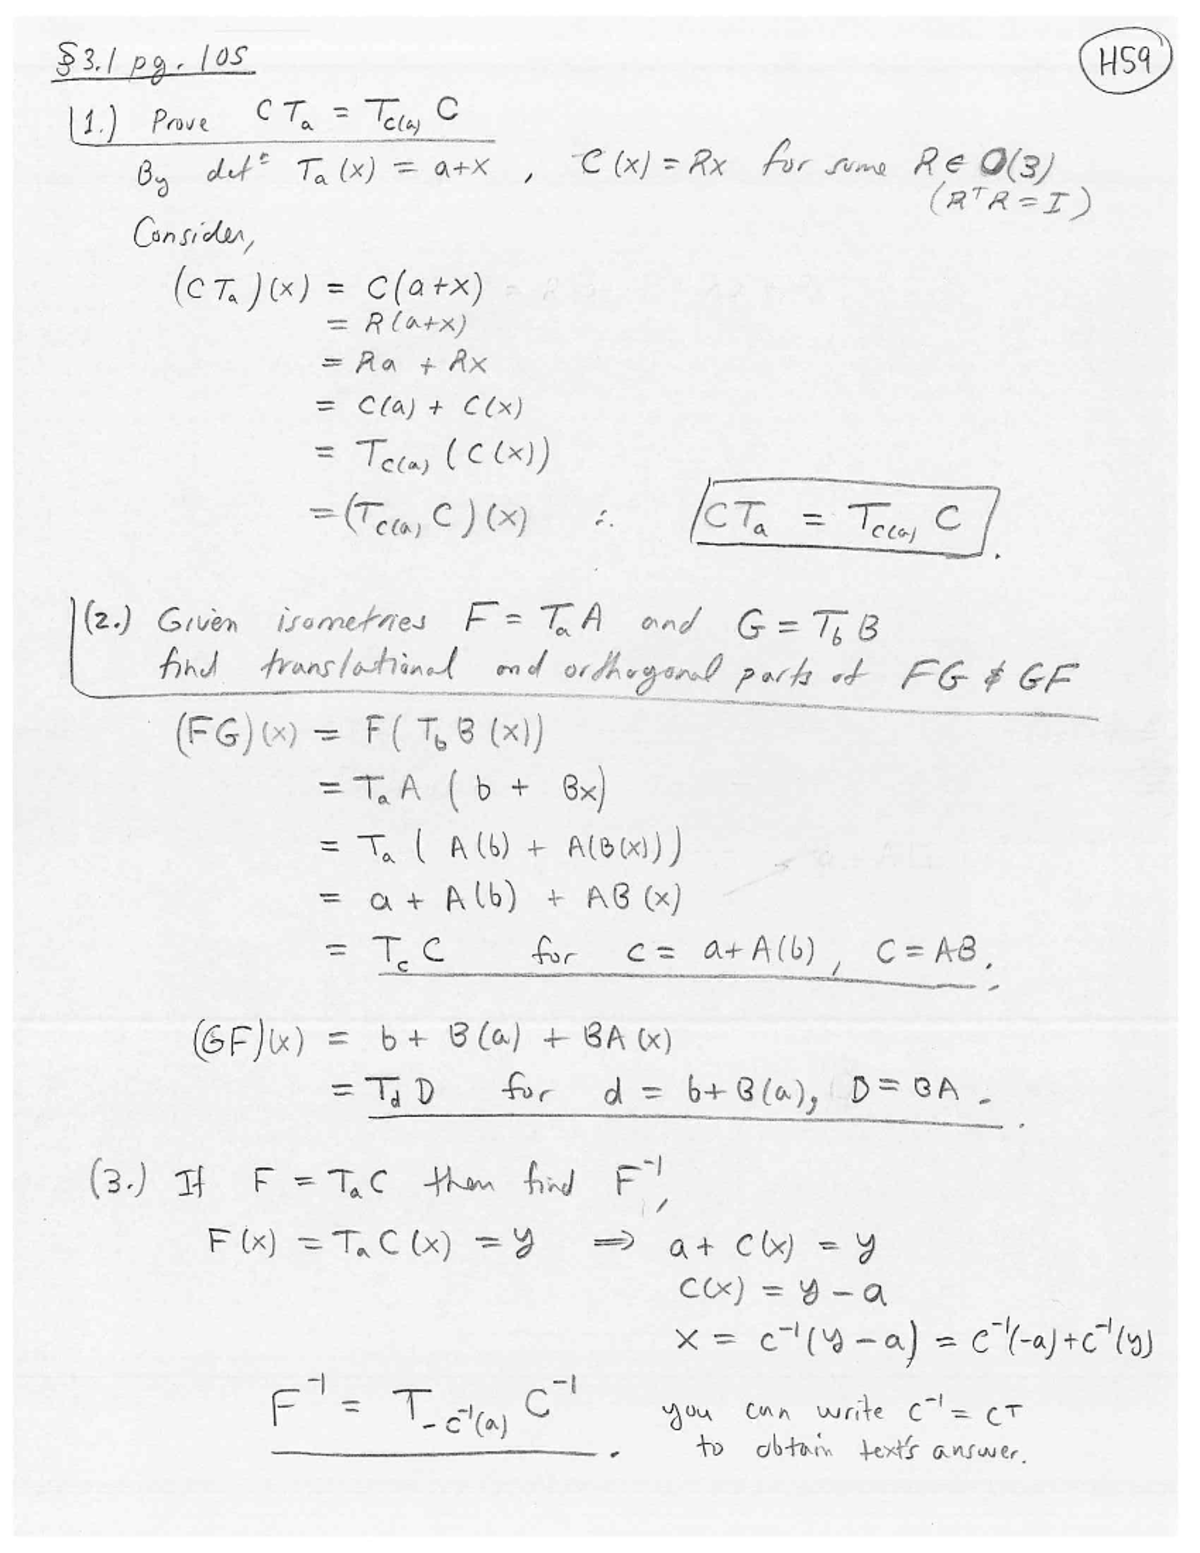 §3.1 pg. 105
H59
(1.) Prove C Tₐ = T_C(a) C
By defⁿ Tₐ(x) = a+x , C(x) = Rx for some R ∈ O(3)
(RᵀR = I)
Consider,
(C Tₐ)(x) = C(a+x)
= R(a+x)
= Ra + Rx
= C(a) + C(x)
= T_C(a) (C(x))
= (T_C(a) C)(x) ∴ CTₐ = T_C(a) C.
(2.) Given isometries F = TₐA and G = T_b B
find translational and orthogonal parts of FG & GF
(FG)(x) = F( T_b B(x))
= TₐA ( b + Bx)
= Tₐ ( A(b) + A(B(x)))
= a + A(b) + AB(x)
= T_c C for c = a+A(b), C = AB.
(GF)(x) = b + B(a) + BA(x)
= T_d D for d = b+B(a), D = BA.
(3.) If F = TₐC then find F⁻¹,
F(x) = TₐC(x) = y ⟹ a + C(x) = y
C(x) = y - a
x = C⁻¹(y-a) = C⁻¹(-a)+C⁻¹(y)
F⁻¹ = T_-C⁻¹(a) C⁻¹ . you can write C⁻¹ = Cᵀ
to obtain text's answer.